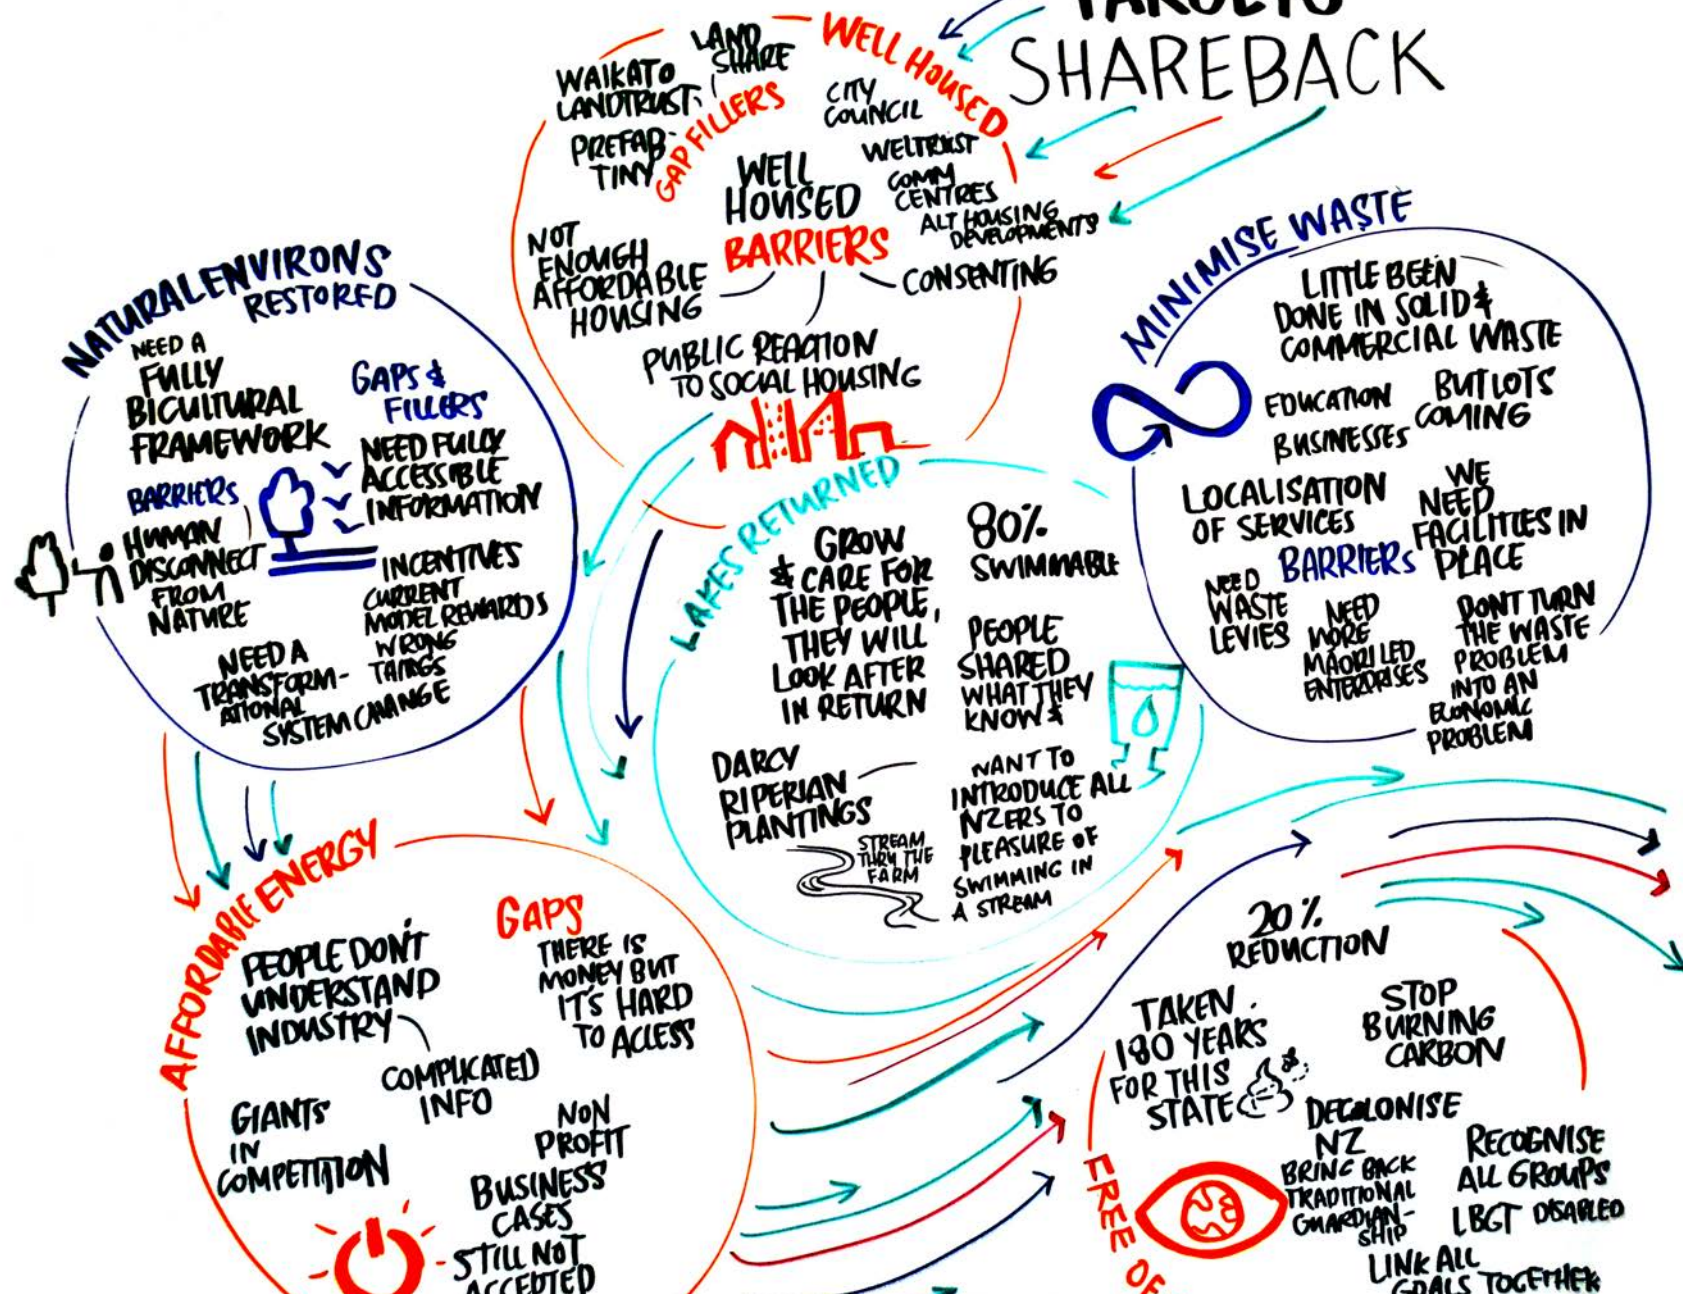 TARGETS
SHAREBACK
WELL HOUSED
LAND
SHARE
WAIKATO
LANDTRUST
PREFAB
TINY
GAP FILLERS
CITY
COUNCIL
WELTRUST
COMM
CENTRES
ALT HOUSING
DEVELOPMENTS
WELL
HOUSED
BARRIERS
NOT
ENOUGH
AFFORDABLE
HOUSING
CONSENTING
PUBLIC REACTION
TO SOCIAL HOUSING
NATURAL ENVIRONS
RESTORED
NEED A
FULLY
BICULTURAL
FRAMEWORK
GAPS &
FILLERS
NEED FULLY
ACCESSIBLE
INFORMATION
BARRIERS
HUMAN
DISCONNECT
FROM
NATURE
INCENTIVES
CURRENT
MODEL REWARDS
WRONG
THINGS
NEED A
TRANSFORM-
ATIONAL
SYSTEM CHANGE
MINIMISE WASTE
LITTLE BEEN
DONE IN SOLID &
COMMERCIAL WASTE
BUT LOTS
COMING
EDUCATION
BUSINESSES
LOCALISATION
OF SERVICES
WE
NEED
FACILITIES IN
PLACE
BARRIERS
NEED
WASTE
LEVIES
NEED
MORE
MAORI LED
ENTERPRISES
DONT TURN
THE WASTE
PROBLEM
INTO AN
ECONOMIC
PROBLEM
LAKES RETURNED
GROW
& CARE FOR
THE PEOPLE,
THEY WILL
LOOK AFTER
IN RETURN
80%
SWIMMABLE
PEOPLE
SHARED
WHAT THEY
KNOW &
DARCY
RIPERIAN
PLANTINGS
STREAM
THRU THE
FARM
WANT TO
INTRODUCE ALL
NZERS TO
PLEASURE OF
SWIMMING IN
A STREAM
AFFORDABLE ENERGY
PEOPLE DON'T
UNDERSTAND
INDUSTRY
COMPLICATED
INFO
GAPS
THERE IS
MONEY BUT
IT'S HARD
TO ACCESS
GIANTS
IN
COMPETITION
NON
PROFIT
BUSINESS
CASES
STILL NOT
ACCEPTED
20%
REDUCTION
TAKEN
180 YEARS
FOR THIS
STATE
STOP
BURNING
CARBON
DECOLONISE
NZ
BRING BACK
TRADITIONAL
GUARDIAN-
SHIP
RECOGNISE
ALL GROUPS
LBGT DISABLED
LINK ALL
GOALS TOGETHER
FREE OF